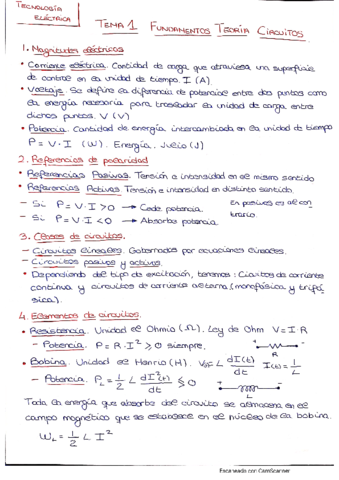 TECNOLOGÍA
ELÉCTRICA
TEMA 1 FUNDAMENTOS TEORÍA CIRCUITOS
1. Magnitudes eléctricas
• Corriente eléctrica. Cantidad de carga que atraviesa una superficie
de control en la unidad de tiempo. I (A)
• Voltaje. Se define la diferencia de potencial entre dos puntos como
la energía necesaria para trasladar la unidad de carga entre
dichos puntos. V (V)
• Potencia. Cantidad de energía intercambiada en la unidad de tiempo
P = V · I (W). Energía, Julio (J)
2. Referencias de polaridad
• Referencias Pasivas. Tensión e intensidad en el mismo sentido
• Referencias Activas. Tensión e intensidad en distinto sentido
– Si P = V · I > 0 → Cede potencia.
– Si P = V · I < 0 → Absorbe potencia
En pasivas es al con
trario.
3. Clases de circuitos.
– Circuitos lineales. Gobernados por ecuaciones lineales.
– Circuitos pasivos y activos.
• Dependiendo del tipo de excitación, tenemos: Circuitos de corriente
continua y circuitos de corriente alterna (monofásica y trifá
sica).
4. Elementos de circuitos.
• Resistencia. Unidad el Ohmio (Ω). Ley de Ohm V = I R
– Potencia. P = R · I² ⩾ 0 siempre.
+ –
R
• Bobina. Unidad el Henrio (H). L dI(t)/dt I(t) = 1/L
– Potencia. P_L = 1/2 L dI²(t)/dt ⩽ 0
+ –
L
Toda la energía que absorbe del circuito se almacena en el
campo magnético que se establece en el núcleo de la bobina.
W_L = 1/2 L I²
Escaneado con CamScanner